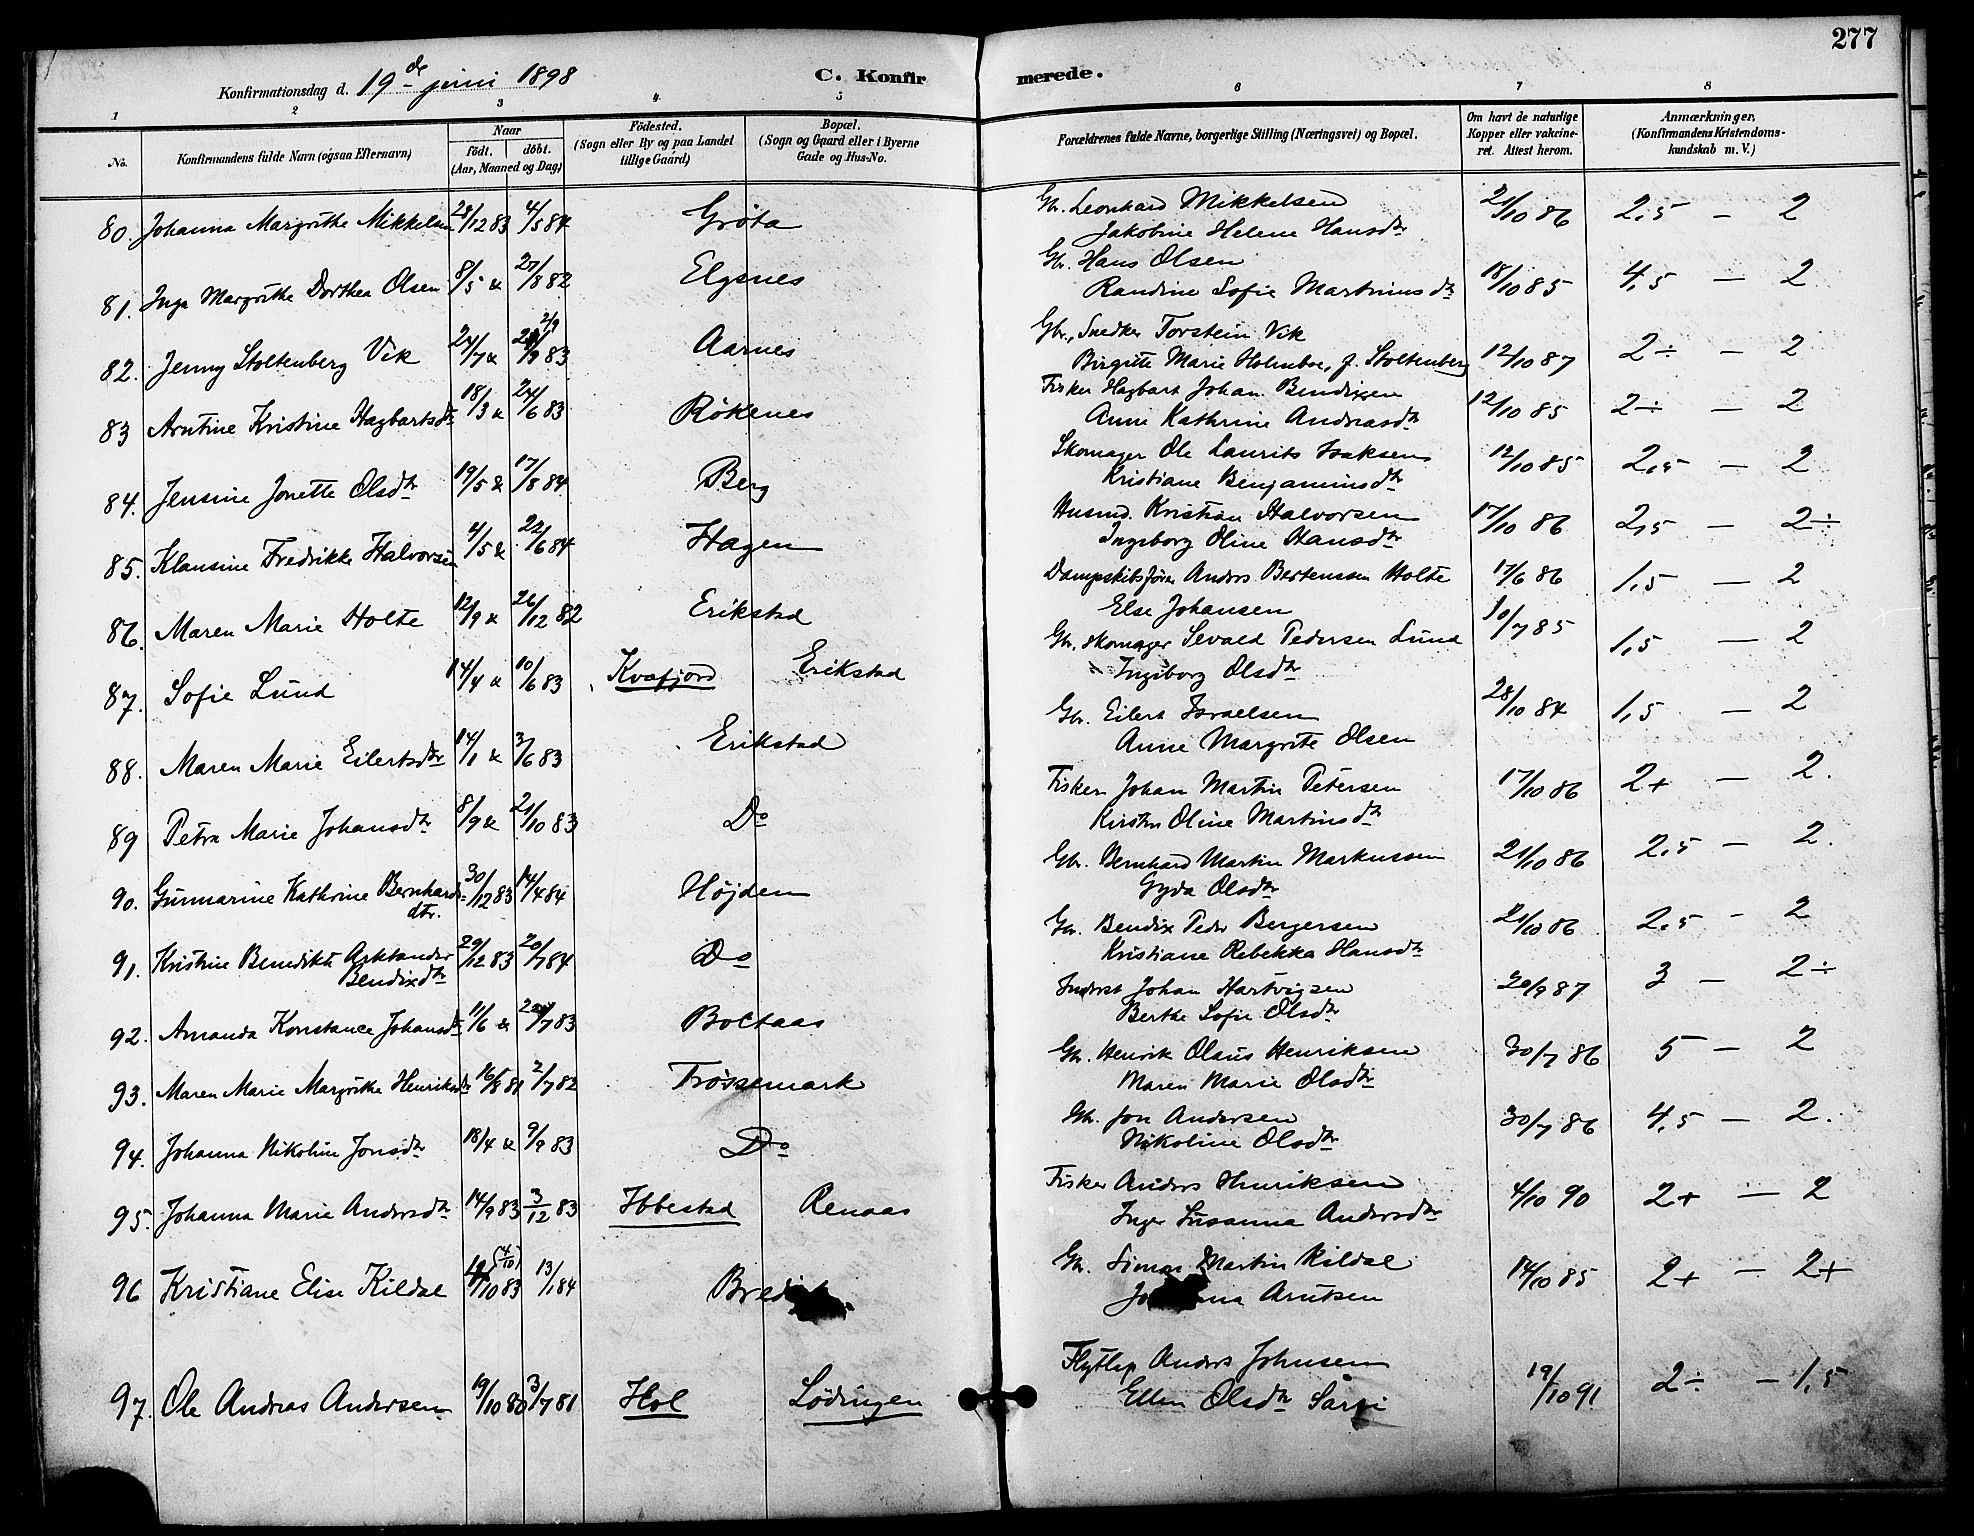 277
Konfirmationsdag d. 19de juni 1898
C. Konfirmerede.
1 2 3 4 5 6 7 8
No. Konfirmandens fulde Navn (ogsaa Efternavn) Naar Födt. döbt. (Aar, Maaned og Dag) Födested. (Sogn eller By og paa Landet tillige Gaard) Bopæl. (Sogn og Gaard eller i Byerne Gade og Hus-No. Forældrenes fulde Navne, borgerlige Stilling (Næringsvei) og Bopæl. Om havt de naturlige Kopper eller vakcineret. Attest herom. Anmærkninger, (Konfirmandens Kristendomskundskab m. V.)
80. Johanna Margrithe Mikkelsen 28/12 83 4/5 84 Gröta Gbr. Leonhard Mikkelsen 21/10 86 2,5 — 2
Jakobine Helene Hansdtr
81. Inga Margrithe Dorthea Olsen 8/5 & 27/8 82 Elgsnes Gbr. Hans Olsen 18/10 85 4,5 — 2
Randine Sofie Martinusdtr
82. Jenny Stoltenberg Vik 24/7 & 2/9 83 Aarnes Gbr., Snedker Torstein Vik
Birgitte Marie Holmboe, f. Stoltenberg 12/10 87 2÷ — 2
83 Arntine Kristine Hagbartsdtr 18/3 & 24/6 83 Rökenes Fisker Hagbart Johan Bendixen 12/10 85 2÷ — 2
Anne Kathrine Andreasdtr
84. Jensine Jonette Olsdtr 19/5 & 17/8 84 Berg Skomager Ole Laurits Isaksen 12/10 85 2,5 — 2
Kristiane Benjaminsdtr
85. Klausine Fredrikke Halvorsen 4/5 & 22/6 84 Hagen Husmd. Kristian Halvorsen 17/10 86 2,5 — 2÷
Ingeborg Oline Hansdtr
86. Maren Marie Holte 12/9 & 26/12 82 Erikstad Dampskibsförer Anders Bertenssen Holte 17/6 86 1,5 — 2
Else Johansen
87. Sofie Lund 14/4 & 10/6 83 Kvafjord Erikstad Gbr, skomager Sevald Pedersen Lund 10/7 85 1,5 — 2
Ingeborg Olsdtr
88. Maren Marie Eilertsdtr 14/1 & 3/6 83 Erikstad Gbr. Eilert Israelsen 28/10 84 1,5 — 2
Anne Margrete Olsen
89 Petra Marie Johansdtr 8/9 & 21/10 83 Do Fisker Johan Martin Petersen 17/10 86 2+ — 2.
Kirsten Oline Martinsdtr
90. Gunnarine Kathrine Bernhards- 30/12 83 14/4 84 Höjden Gbr. Bernhard Martin Markussen 21/10 86 2,5 — 2.
dtr. Gyda Olsdtr
91. Kristine Benedikte Arktander 29/12 83 20/7 84 Do Gbr. Bendix Peder Bergersen 21/10 86 2,5 - 2
Bendixdtr Kristiane Rebekka Hansdtr
92. Amanda Konstance Johansdtr 11/6 & /7 83 Boltaas Inderst Johan Hartvigsen 20/9 87 3 — 2÷
Berthe Sofie Olsdtr
93. Maren Marie Margrithe Henriksdtr 16/8 81 2/7 82 Trössemark Gbr. Henrik Olaus Henriksen 30/7 86 5 — 2
Maren Marie Olsdtr
94. Johanna Nikoline Jonsdtr 18/4 & 9/9 83 Do Gbr. Jon Andersen 30/7 86 4,5 — 2.
Nikoline Olsdtr
95. Johanna Marie Andersdtr 14/9 83 3/12 83 Ibbestad Renaas Fisker Anders Henriksen 4/10 90 2+ — 2
Inger Susanna Andersdtr
96 Kristiane Elise Kildal /10 83 (4/10) 13/1 84 Gbr. Simon Martin Kildal 14/10 85 2+ — 2+
Arntsen
97. Ole Andreas Andersen 19/10 80 3/7 81 Hol Lödingen Flytlap Anders Johnsen 19/10 91 2÷ — 1,5
Ellen Olsdtr Sarri